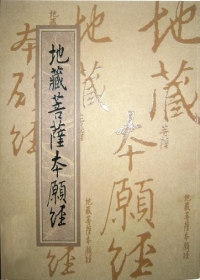 地藏菩薩本願經
地藏
菩薩
本願經
地藏菩薩本願經
本願經
地藏菩薩本願經